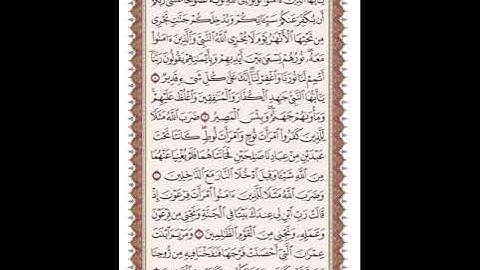 يَٰٓأَيُّهَا ٱلَّذِينَ ءَامَنُوا۟ تُوبُوٓا۟ إِلَى ٱللَّهِ تَوْبَةً نَّصُوحًا عَسَىٰ رَبُّكُمْ
أَن يُكَفِّرَ عَنكُمْ سَيِّـَٔاتِكُمْ وَيُدْخِلَكُمْ جَنَّٰتٍ تَجْرِى
مِن تَحْتِهَا ٱلْأَنْهَٰرُ يَوْمَ لَا يُخْزِى ٱللَّهُ ٱلنَّبِىَّ وَٱلَّذِينَ ءَامَنُوا۟
مَعَهُۥ نُورُهُمْ يَسْعَىٰ بَيْنَ أَيْدِيهِمْ وَبِأَيْمَٰنِهِمْ يَقُولُونَ رَبَّنَآ
أَتْمِمْ لَنَا نُورَنَا وَٱغْفِرْ لَنَآ إِنَّكَ عَلَىٰ كُلِّ شَىْءٍ قَدِيرٌ ٨
يَٰٓأَيُّهَا ٱلنَّبِىُّ جَٰهِدِ ٱلْكُفَّارَ وَٱلْمُنَٰفِقِينَ وَٱغْلُظْ عَلَيْهِمْ
وَمَأْوَىٰهُمْ جَهَنَّمُ وَبِئْسَ ٱلْمَصِيرُ ٩ ضَرَبَ ٱللَّهُ مَثَلًا
لِّلَّذِينَ كَفَرُوا۟ ٱمْرَأَتَ نُوحٍ وَٱمْرَأَتَ لُوطٍ كَانَتَا تَحْتَ
عَبْدَيْنِ مِنْ عِبَادِنَا صَٰلِحَيْنِ فَخَانَتَاهُمَا فَلَمْ يُغْنِيَا عَنْهُمَا
مِنَ ٱللَّهِ شَيْـًٔا وَقِيلَ ٱدْخُلَا ٱلنَّارَ مَعَ ٱلدَّٰخِلِينَ ١٠
وَضَرَبَ ٱللَّهُ مَثَلًا لِّلَّذِينَ ءَامَنُوا۟ ٱمْرَأَتَ فِرْعَوْنَ إِذْ
قَالَتْ رَبِّ ٱبْنِ لِى عِندَكَ بَيْتًا فِى ٱلْجَنَّةِ وَنَجِّنِى مِن فِرْعَوْنَ
وَعَمَلِهِۦ وَنَجِّنِى مِنَ ٱلْقَوْمِ ٱلظَّٰلِمِينَ ١١ وَمَرْيَمَ ٱبْنَتَ
عِمْرَٰنَ ٱلَّتِىٓ أَحْصَنَتْ فَرْجَهَا فَنَفَخْنَا فِيهِ مِن رُّوحِنَا